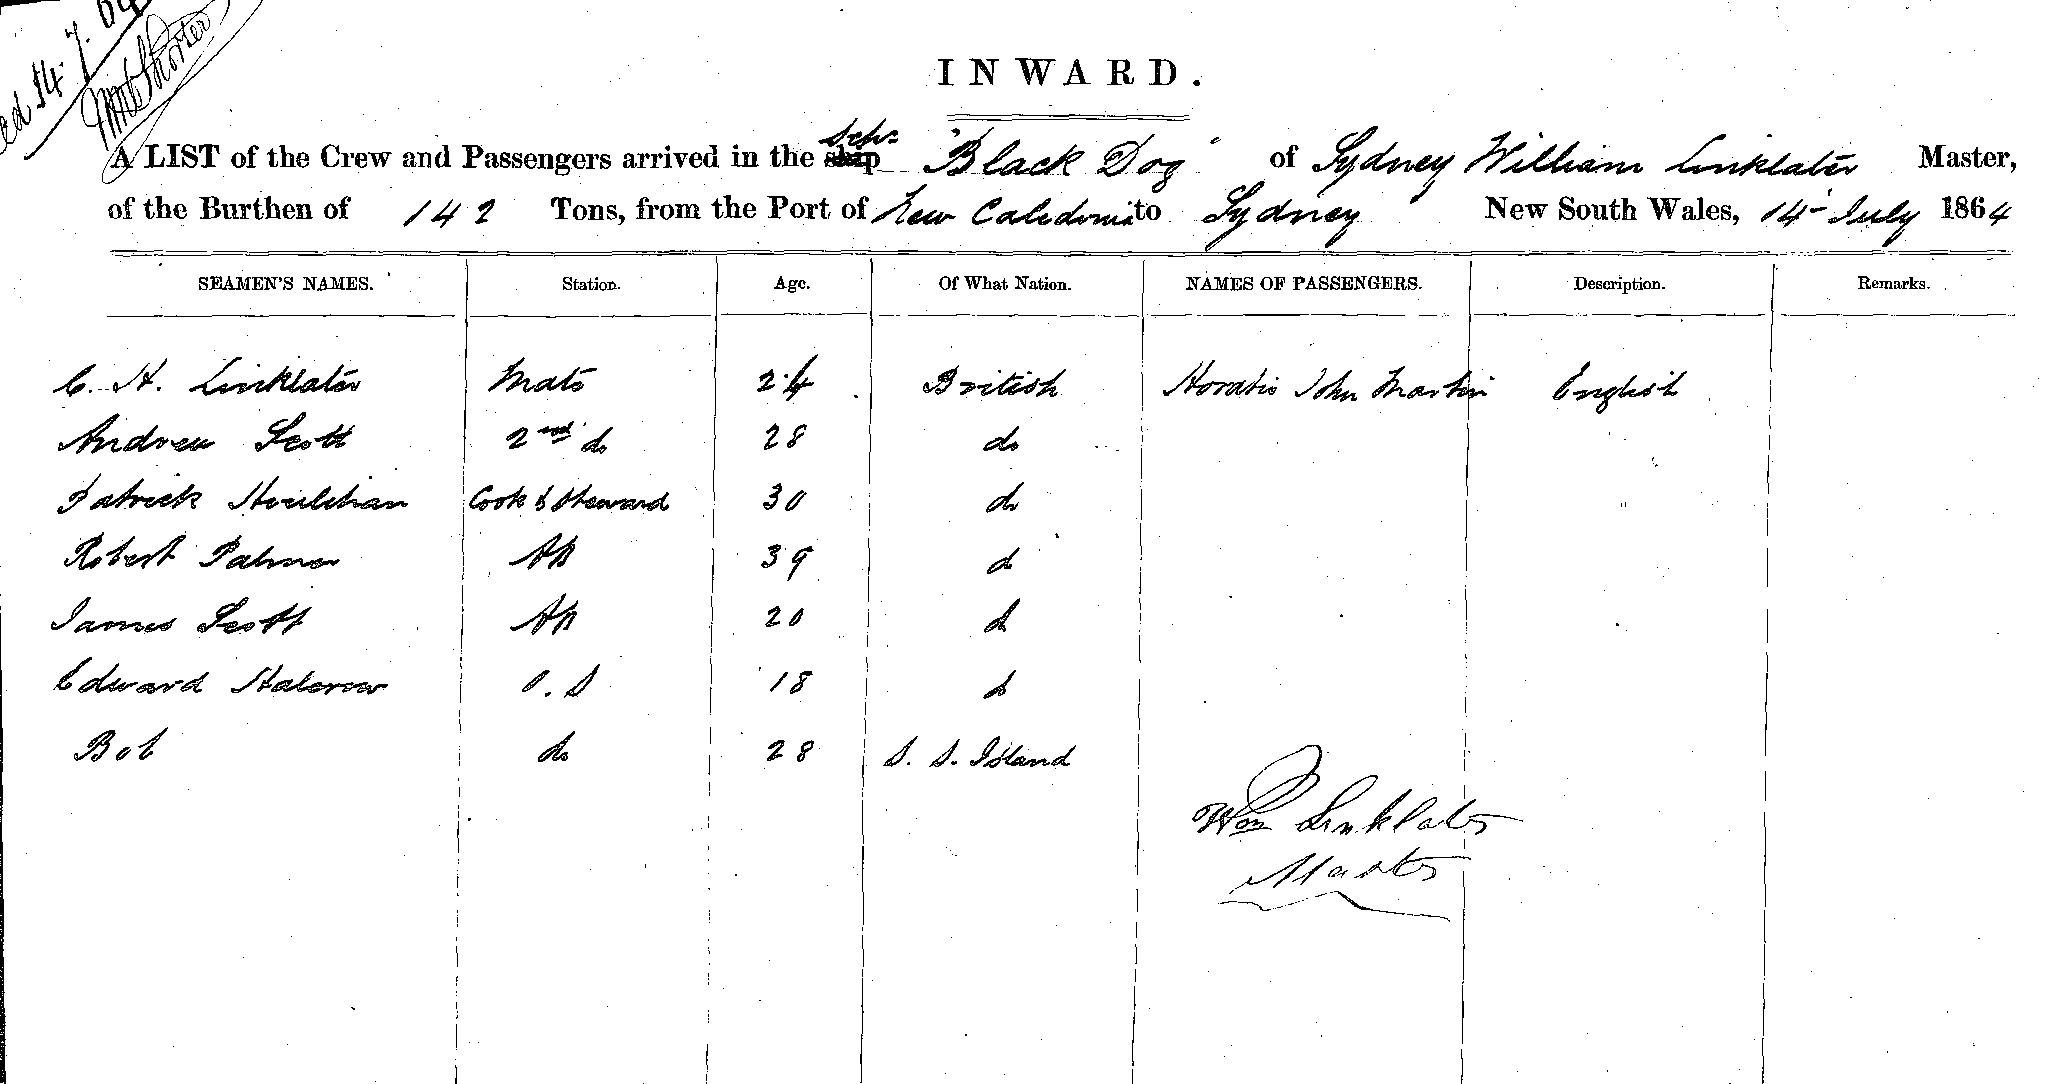 14.7.64
INWARD.
A LIST of the Crew and Passengers arrived in the ship Schr "Black Dog" of Sydney William Linklater Master,
of the Burthen of 142 Tons, from the Port of New Caledonia to Sydney New South Wales, 14 July 1864
SEAMEN'S NAMES. Station. Age. Of What Nation. NAMES OF PASSENGERS. Description. Remarks.
C. H. Linklater Mate 24 British Horatio John Martin English
Andrew Scott 2nd do 28 do
Patrick Houlihan Cook & Steward 30 do
Robert Palmer AB 39 do
James Scott AB 20 do
Edward Halcrow O.S 18 do
Bob do 28 S. S. Island
Wm Linklater
Master